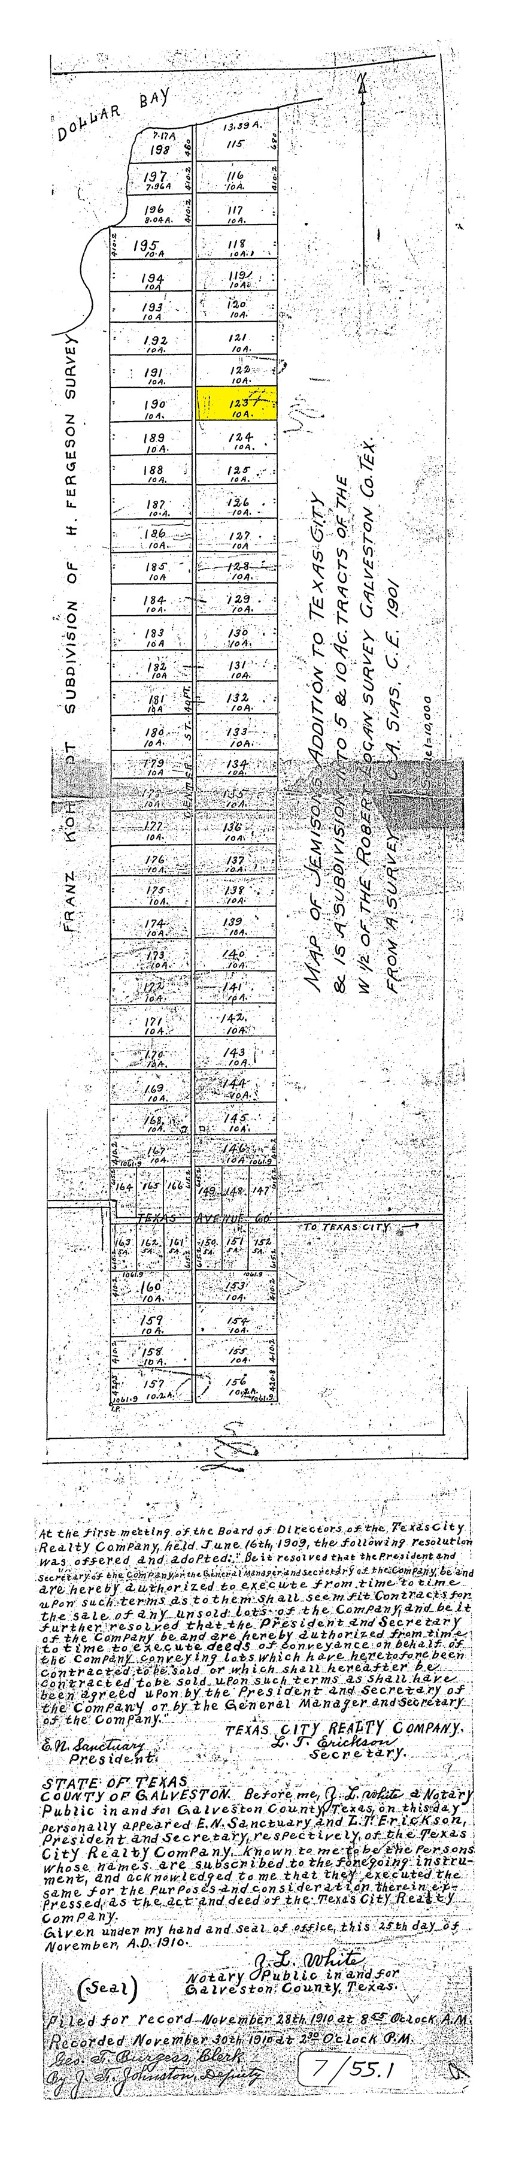 DOLLAR BAY
7.17A
198
460
13.39A.
115
680
197
7.96A
410.2
116
10A.
410.2
196
8.04A.
410.2
117
10A.
410.2
195
10.A
118
10A.
194
10A
119
10A.
193
10A
120
10A.
192
10A.
121
10A.
191
10A
122
10A.
190
10A.
123
10A.
189
10A.
124
10A.
188
10A.
125
10A.
187
10.A.
126
10A.
186
10A.
127
10A.
185
10A
128
10A.
184
10A.
129
10A.
183
10A
130
10A.
182
10A
131
10A.
181
10A
132
10A.
180
10A.
133
10A.
179
10A.
134
10A.
135
177
10A.
136
10A.
176
10A.
137
10A.
175
10A.
138
10A.
174
10A.
139
10A.
173
10A.
140
10A.
172
10A.
141
10A.
171
10A.
142
10A.
170
10A.
143
10A.
169
10A.
144
10A.
168
10A.
145
10A.
410.2
167
1061.9
146
10A
1061.9
410.2
164
165
166
149
148
147
TEXAS AVENUE 60
TO TEXAS CITY
163
5A.
162
5A.
161
5A.
150
5A.
151
5A.
152
5A.
1061.9
1061.9
410.2
160
10A.
153
10A.
410.2
159
10A.
154
10A.
410.2
158
10A.
155
10A.
410.2
157
1061.9
10.2A.
156
10.2A.
1061.9
420.8
CENTER ST. 40FT.
FRANZ KOH DT SUBDIVISION OF H. FERGESON SURVEY
MAP OF JEMISONS ADDITION TO TEXAS CITY
& IS A SUBDIVISION INTO 5 & 10 AC. TRACTS OF THE
W 1/2 OF THE ROBERT LOGAN SURVEY GALVESTON CO. TEX.
FROM A SURVEY A. SIAS, C.E. 1901
Scale 1=10,000
At the first metting of the Board of Directors of the, Texas City
Realty Company, held June 16th, 1909, the following resolution
was offered and adopted: "Be it resolved that the President and
Secretary of the Company, or the General Manager and Secretary of the Company, be and
are hereby authorized to execute from time to time
upon such terms as to them shall seem fit Contracts for
the sale of any unsold lots of the Company, and be it
further resolved that the President and Secretary
of the Company be and are hereby authorized from time
to time to execute deeds of conveyance on behalf of
the Company conveying lots which have heretofore been
contracted to be sold or which shall hereafter be
contracted to be sold upon such terms as shall have
been agreed upon by the President and Secretary of
the Company or by the General Manager and Secretary
of the Company."
TEXAS CITY REALTY COMPANY.
E. N. Sanctuary
President.
L. T. Erickson
Secretary.
STATE OF TEXAS
COUNTY OF GALVESTON. Before me, J. L. White a Notary
Public in and for Galveston County, Texas, on this day
personally appeared E.N. Sanctuary and L.T. Erickson,
President and Secretary, respectively, of the Texas
City Realty Company. known to me to be the persons
whose names are subscribed to the foregoing instru-
ment, and acknowledged to me that they executed the
same for the Purposes and consideration therein ex-
pressed, as the act and deed of the Texas City Realty
Company.
Given under my hand and seal of office, this 25th day of
November, A.D. 1910.
J. L. White
Notary Public in and for
Galveston County, Texas.
(Seal)
Filed for record November 28th 1910 at 8 05 Oclock A.M.
Recorded November 30th 1910 at 2 30 Oclock P.M.
Geo. F. Burgess, Clerk
By J. F. Johnston, Deputy
7/55.1